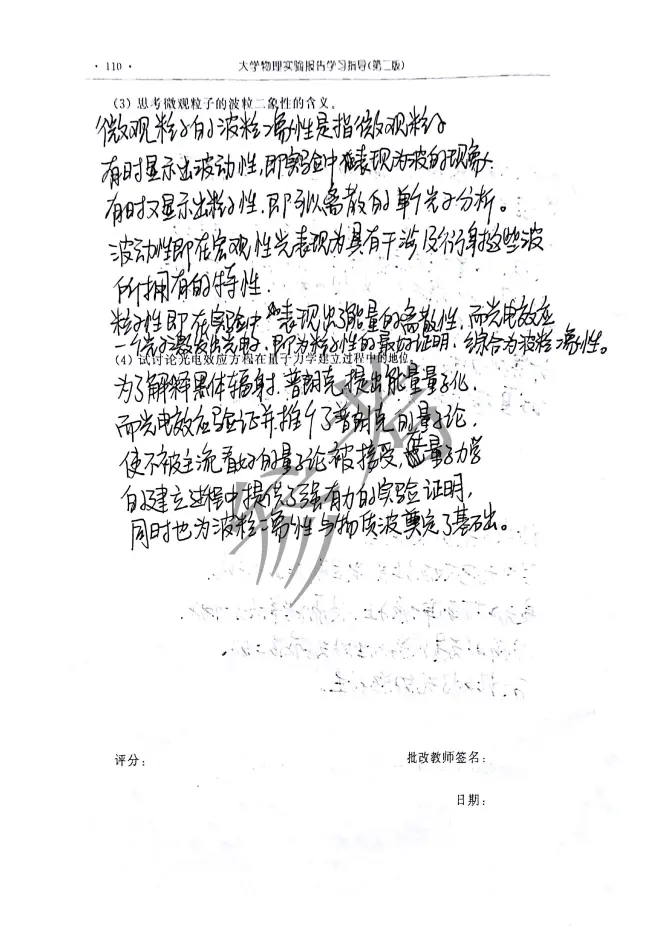 · 110 ·
大学物理实验报告学习指导(第二版)
(3) 思考微观粒子的波粒二象性的含义。
微观粒子的波粒二象性是指微观粒子
有时显示出波动性,即实验中表现为波的现象.
有时又显示出粒子性.即可以离散的单个光子分析。
波动性即在宏观性光表现为具有干涉及衍射这些波
所拥有的特性.
粒子性即在实验中表现出了能量的离散性,而光电效应
一个光子激发出光电子,即为粒子性的最好证明.综合为波粒二象性。
(4) 试讨论光电效应方程在量子力学建立过程中的地位.
为了解释黑体辐射.普朗克提出能量量子化.
而光电效应验证并推介了普朗克的量子论,
使不被主流看好的量子论被接受,量子力学
的建立过程中提供了强有力的实验证明,
同时也为波粒二象性与物质波奠定了基础。
评分:
批改教师签名:
日期: